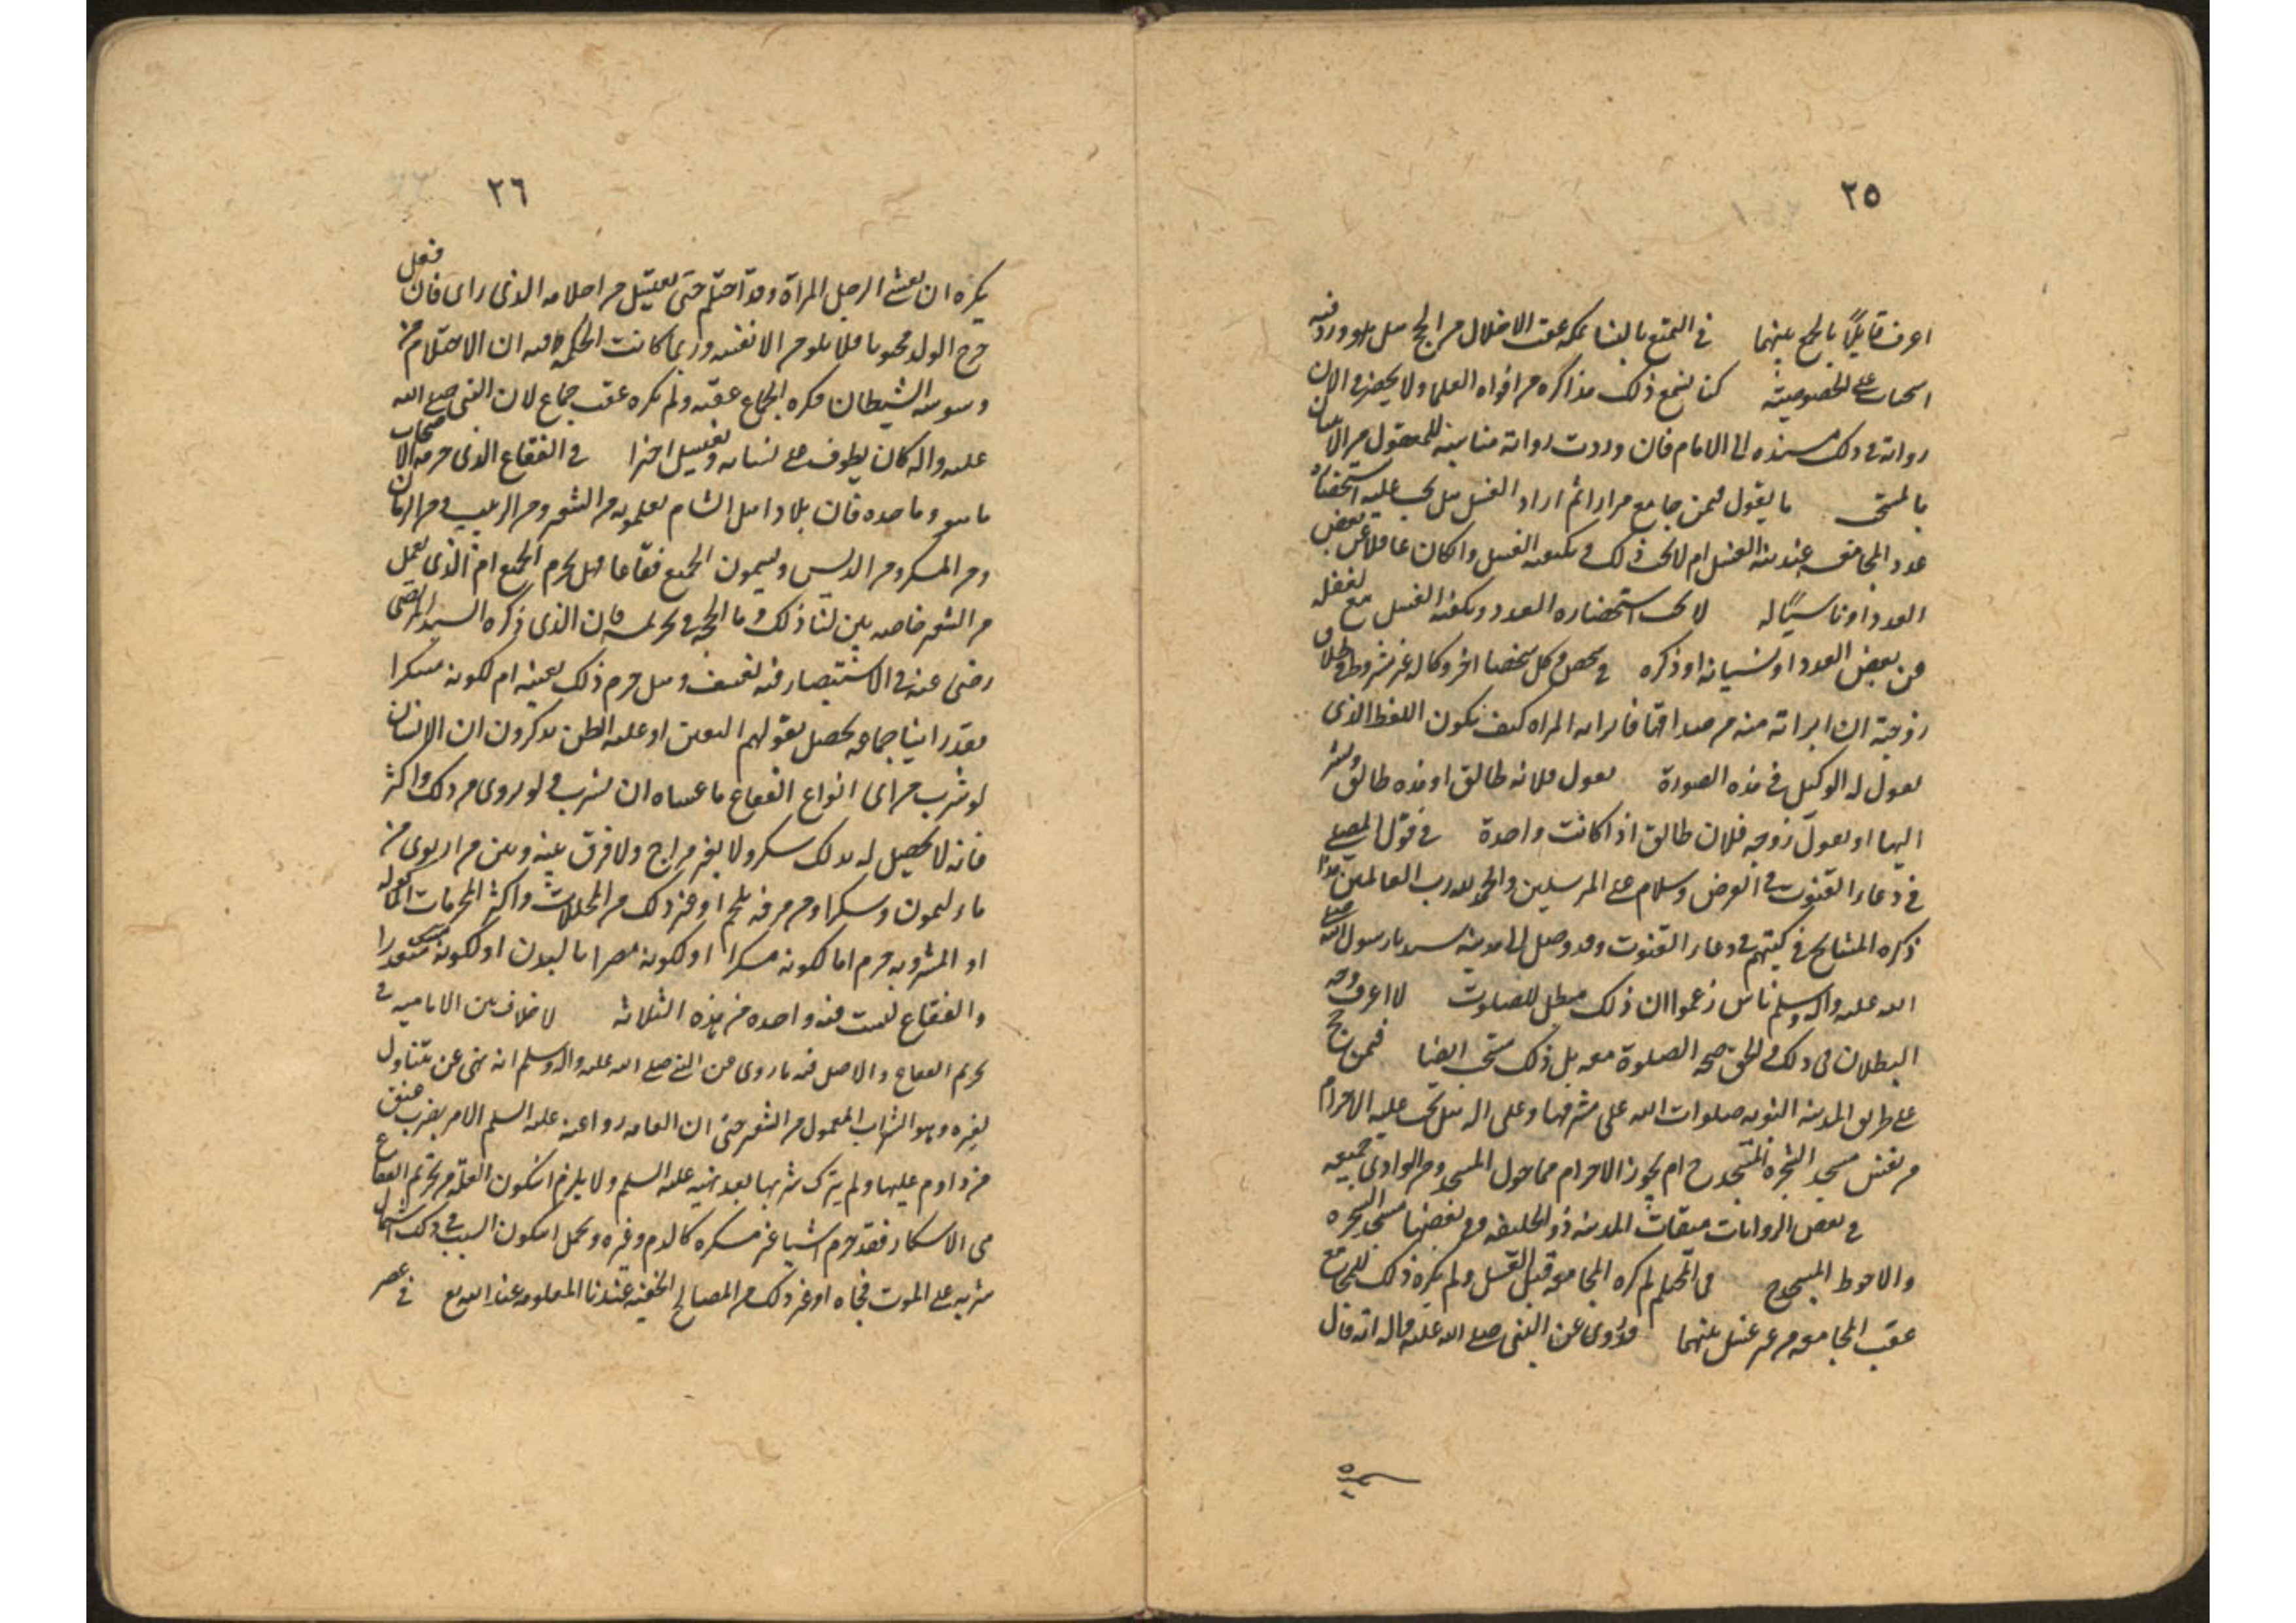 ٢٥
اعرف قايلاً بالجمع بينهما في التمتع بالنساء بمكه عقب الاخلال من الحج هل هو ورد فيه
استحباب على الخصوصيته كنا نسمع ذلك مذاكره من افواه العلماء ولا يحضرني الان
رواته في ذلك مسنده الى الامام فان وردت رواته مناسبه للمنقول من الانسان
بالمستحب ما يقول فيمن جامع مرارا ثم اراد الغسل هل يجب عليه استحضار
عدد المجامعه عند نية الغسل ام لا يجب ذلك ويكفيه الغسل وان كان غافلا عن بعض
العدد او ناسيًا له لا يجب استحضاره العدد ويكفيه الغسل مع الغفله
عن بعض العدد او نسيانه او ذكره في شخص وكل شخصا اخر وكاله غير مشروطه في طلاق
زوجته ان ابراته منه من صداقها فابراته المراه كيف يكون اللفظ الذي
يقول له الوكيل في هذه الصورة يقول فلانه طالق او هذه طالق ويشير
اليها او يقول زوجه فلان طالق اذا كانت واحدة في قول المصلي
في دعاء القنوت في الفرض وسلام على المرسلين والحمد لله رب العالمين هذا
ذكره المشايخ في كتبهم في دعاء القنوت وقد وصل الى مدينة سيدنا رسول الله صلى
الله عليه واله وسلم ناس زعموا ان ذلك مبطل للصلوت لا اعرف وجه
البطلان في ذلك والحق صحه الصلوة معه بل ذلك مستحب ايضا فيمن حج
على طريق المدينه النبويه صلوات الله على مشرفها وعلى اله هل يجب عليه الاحرام
من نفس مسجد الشجره ام يجوز الاحرام مما حول المسجد ومن الوادي جميعه
في بعض الروايات ميقات المدينه ذو الحليفه وفي بعضها مسجد الشجره
والاحوط المسجد في المحتلم لم كره المجامعه قبل الغسل ولم يكره ذلك للمجامع
عقب المجامعه من غير غسل بينهما قد روي عن النبي صلى الله عليه واله انه قال
٢٦
يكره ان يغشى الرجل المراة وقد احتلم حتى يغتسل من احتلامه الذي راى فان فعل
خرج الولد مجنونا فلا يلومن الا نفسه وربما كانت الحكمة فيه ان الاحتلام من
وسوسه الشيطان فكره الجماع عقبه ولم يكره عقب جماع لان النبي صلى الله
عليه واله كان يطوف على نسائه ويغتسل اخرا في الفقاع الذي حرمه الاصحاب
ما هو وما حده فان بلاد اهل الشام يعملونه من الشعير ومن الزبيب ومن الرمان
ومن السكر ومن الدبس ويسمون الجميع فقّاعا فهل يحرم الجميع ام الذي يعمل
من الشعير خاصه بين لنا ذلك وما الحجة في تحريمه فان الذي ذكره السيد المرتضى
رضي عنه في الانتصار فيه تعسف وهل حرم ذلك بعينه ام لكونه مسكرا
فقد راينا جماعه يحصل بقولهم اليقين او غلبه الظن يذكرون ان الانسان
لو شرب من اي انواع الفقاع ما عساه ان يشرب ولو روى من ذلك واكثر
فانه لا يحصل له بذلك سكر ولا يغير مزاج ولا فرق بينه وبين من ارتوى من
ماء ليمون وسكر او من مرقه بلحم او غير ذلك من المحللات واكثر المحرمات الماكوله
او المشروبه حرم اما لكونه مسكرا او لكونه مضرا بالبدن او لكونه مستقذرا
والفقاع ليست فيه واحده من هذه الثلاثه لا خلاف بين الاماميه في
تحريم الفقاع والاصل فيه ما روى عن النبي صلى الله عليه واله وسلم انه نهى عن تناول
لغيره وهو الشراب المعمول من الشعير حتى ان العامه رووا عنه عليه السلم الامر بضرب عنق
من داوم عليها ولم يترك شربها بعد نهيه عليه السلم ولا يلزم ان يكون العلّه من تحريم الفقاع
هي الاسكار فقد حرم اشيا غير مسكره كالدم وغيره ويحتمل ان يكون السبب في ذلك اشتمال
شربه على الموت فجاه او غير ذلك من المصالح الخفيه عندنا المعلومه عند الله تع في عصر